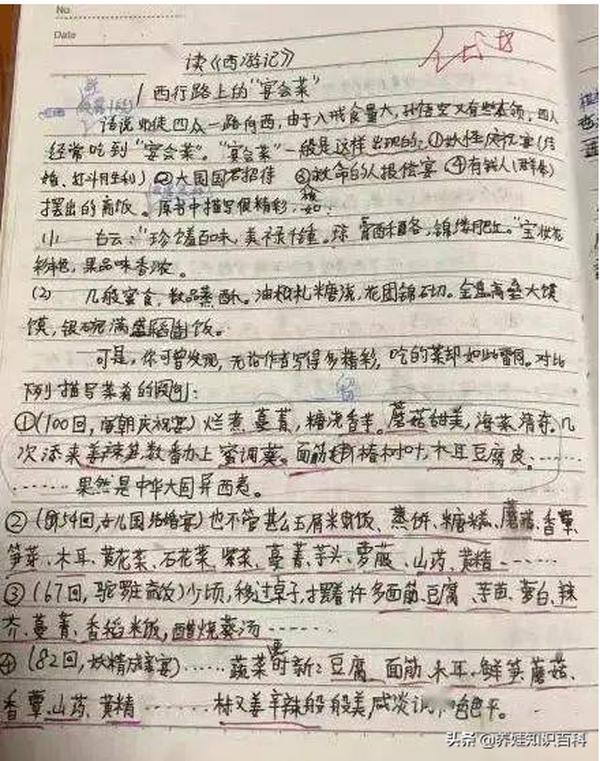 No
Date
读《西游记》
西行路上的“宴会菜”
话说师徒四众一路向西，由于八戒食量大，孙悟空又有些本领，四人
经常吃到“宴会菜”。“宴会菜”一般是这样出现的：①妖怪庆祝宴（结
婚、打斗胜利）②大国国君招待 ③救命的人报偿宴 ④有钱人（群众）
摆出的斋饭。原书中描写很精彩，
(1) 古云：“珍馐百味，美禄千钟。琼膏酥酪，锦缕肥红。”宝妆花
彩艳，果品味香浓。
(2) 几般蜜食，数品蒸酥。油札糖浇，花团锦砌。金盘高垒大馍
馍，银碗满盛稻饭。
可是，你可曾发现，无论作者写得多精彩，吃的菜却如此雷同。对比
下列描写菜肴的
①(100回，唐朝庆祝宴)烂煮蔓菁，糖浇香芋。蘑菇甜美，海菜清奇。几
次添来姜辣笋，数番办上蜜调葵。面筋椿树叶，木耳豆腐皮。……
……果然是中华大国异西夷。
②(第54回，女儿国结婚宴)也不管甚么玉屑米饭、蒸饼、糖糕、蘑菇、香蕈、
笋芽、木耳、黄花菜、石花菜、紫菜、蔓菁、芋头、萝菔、山药、黄精……
③(67回，驼罗庄斋饭)少顷，移过桌子，摆着许多面筋、豆腐、芋苗、萝白、辣
芥、蔓菁、香稻米饭，醋烧葵汤……
④(82回，妖精宴)……蔬菜更时新：豆腐、面筋、木耳、鲜笋、蘑菇、
香蕈、山药、黄精……
头条@养娃知识百科